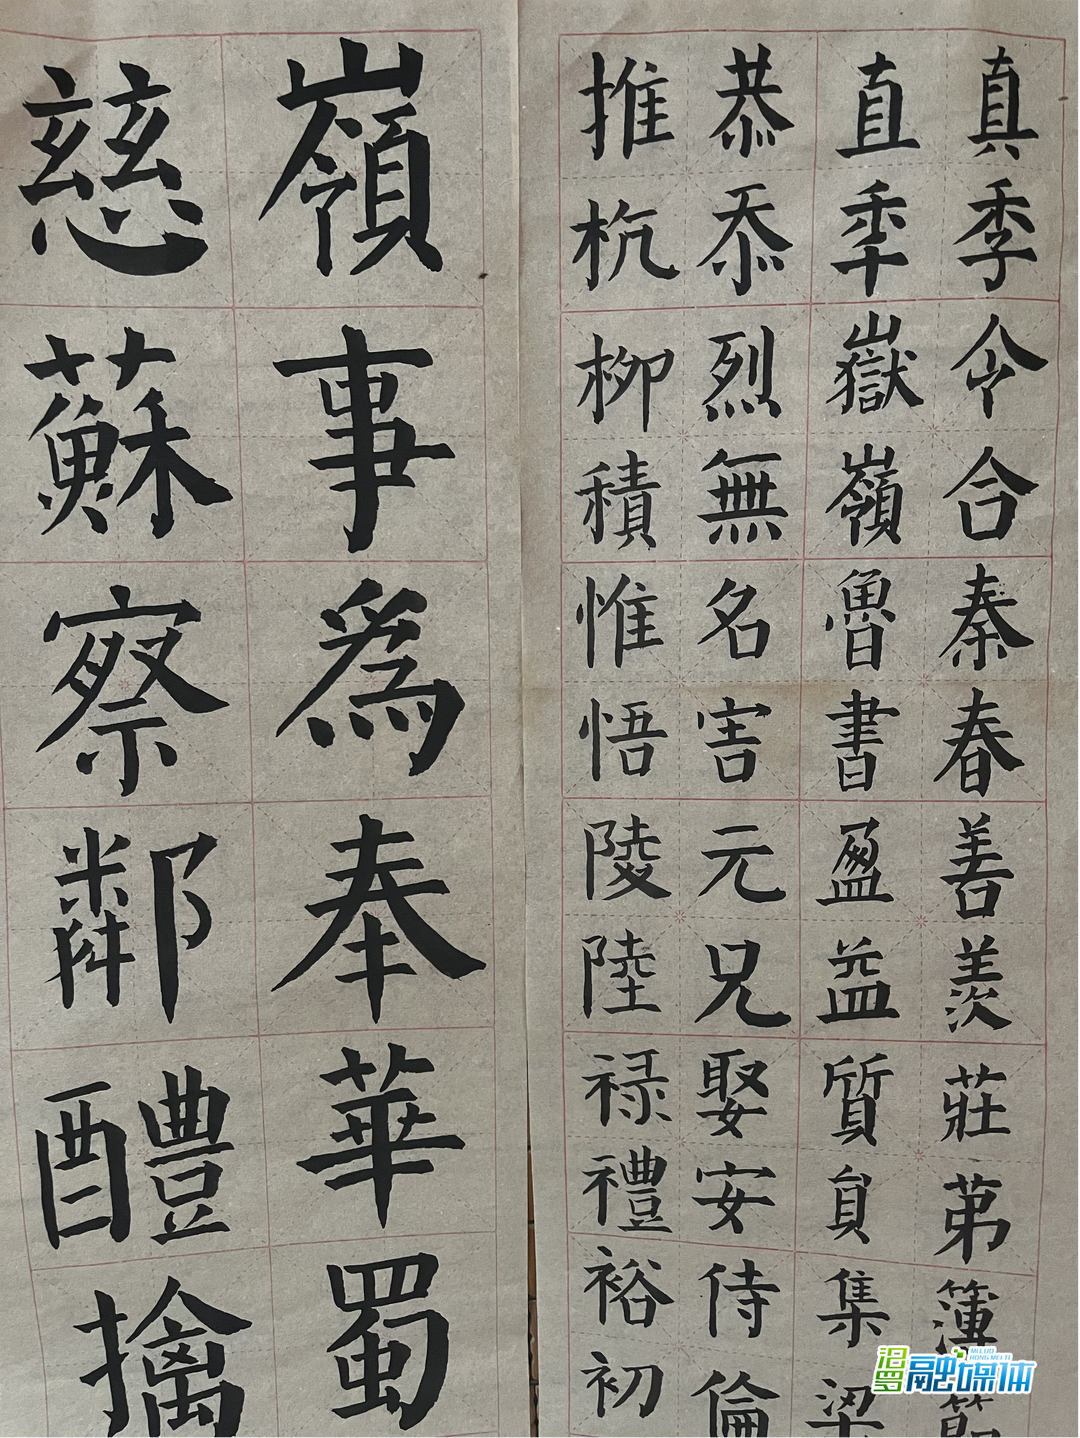 真季令合秦春善羨莊苐簿
直秊嶽嶺魯書盈益質貟集梁
恭忝烈無名害元兄娶安侍倫
推杭柳積惟悟陵陸禄禮裕初
嶺事為奉華蜀
慈蘇察鄰醴擒
汨罗融媒体
MILUO
RONG MEI TI